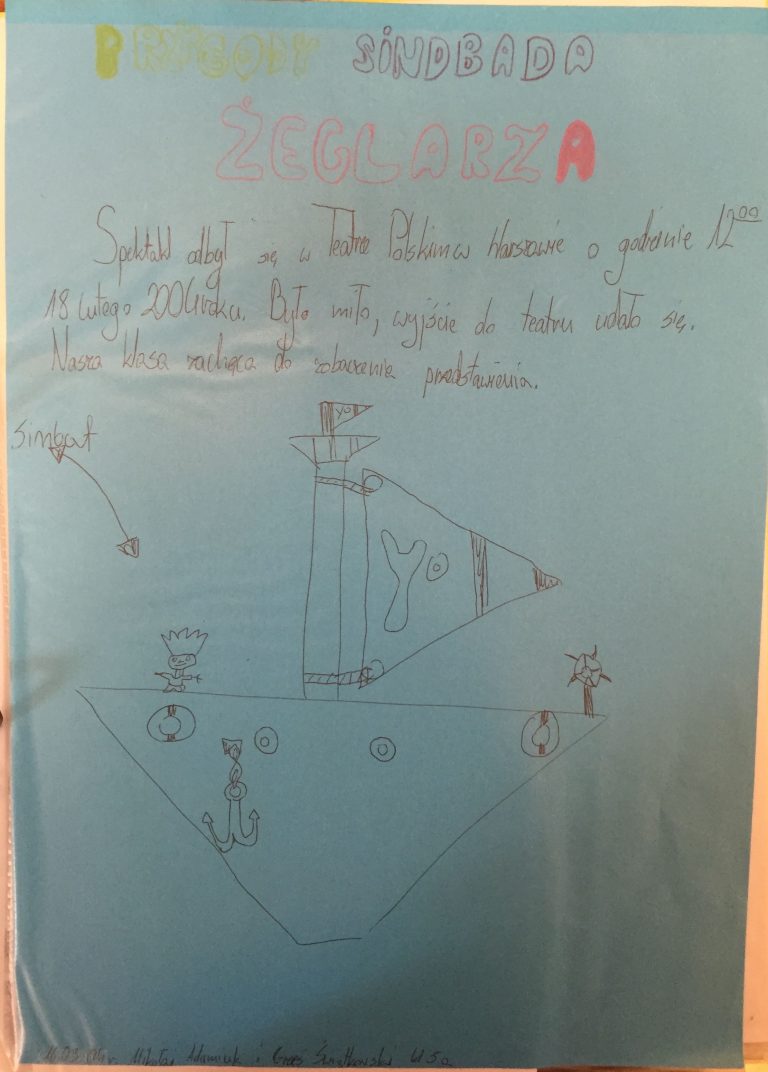 PRZYGODY SINDBADA
ŻEGLARZA
Spektakl odbył się w Teatrze Polskim w Warszawie o godzinie 12⁰⁰
18 lutego 2004 roku. Było miło, wyjście do teatru udało się.
Nasza klasa zachęca do zobaczenia przedstawienia.
Simbat
yo
Yo
16.03.04r. Mikołaj Adamiuk i Świątkowski kl 5a